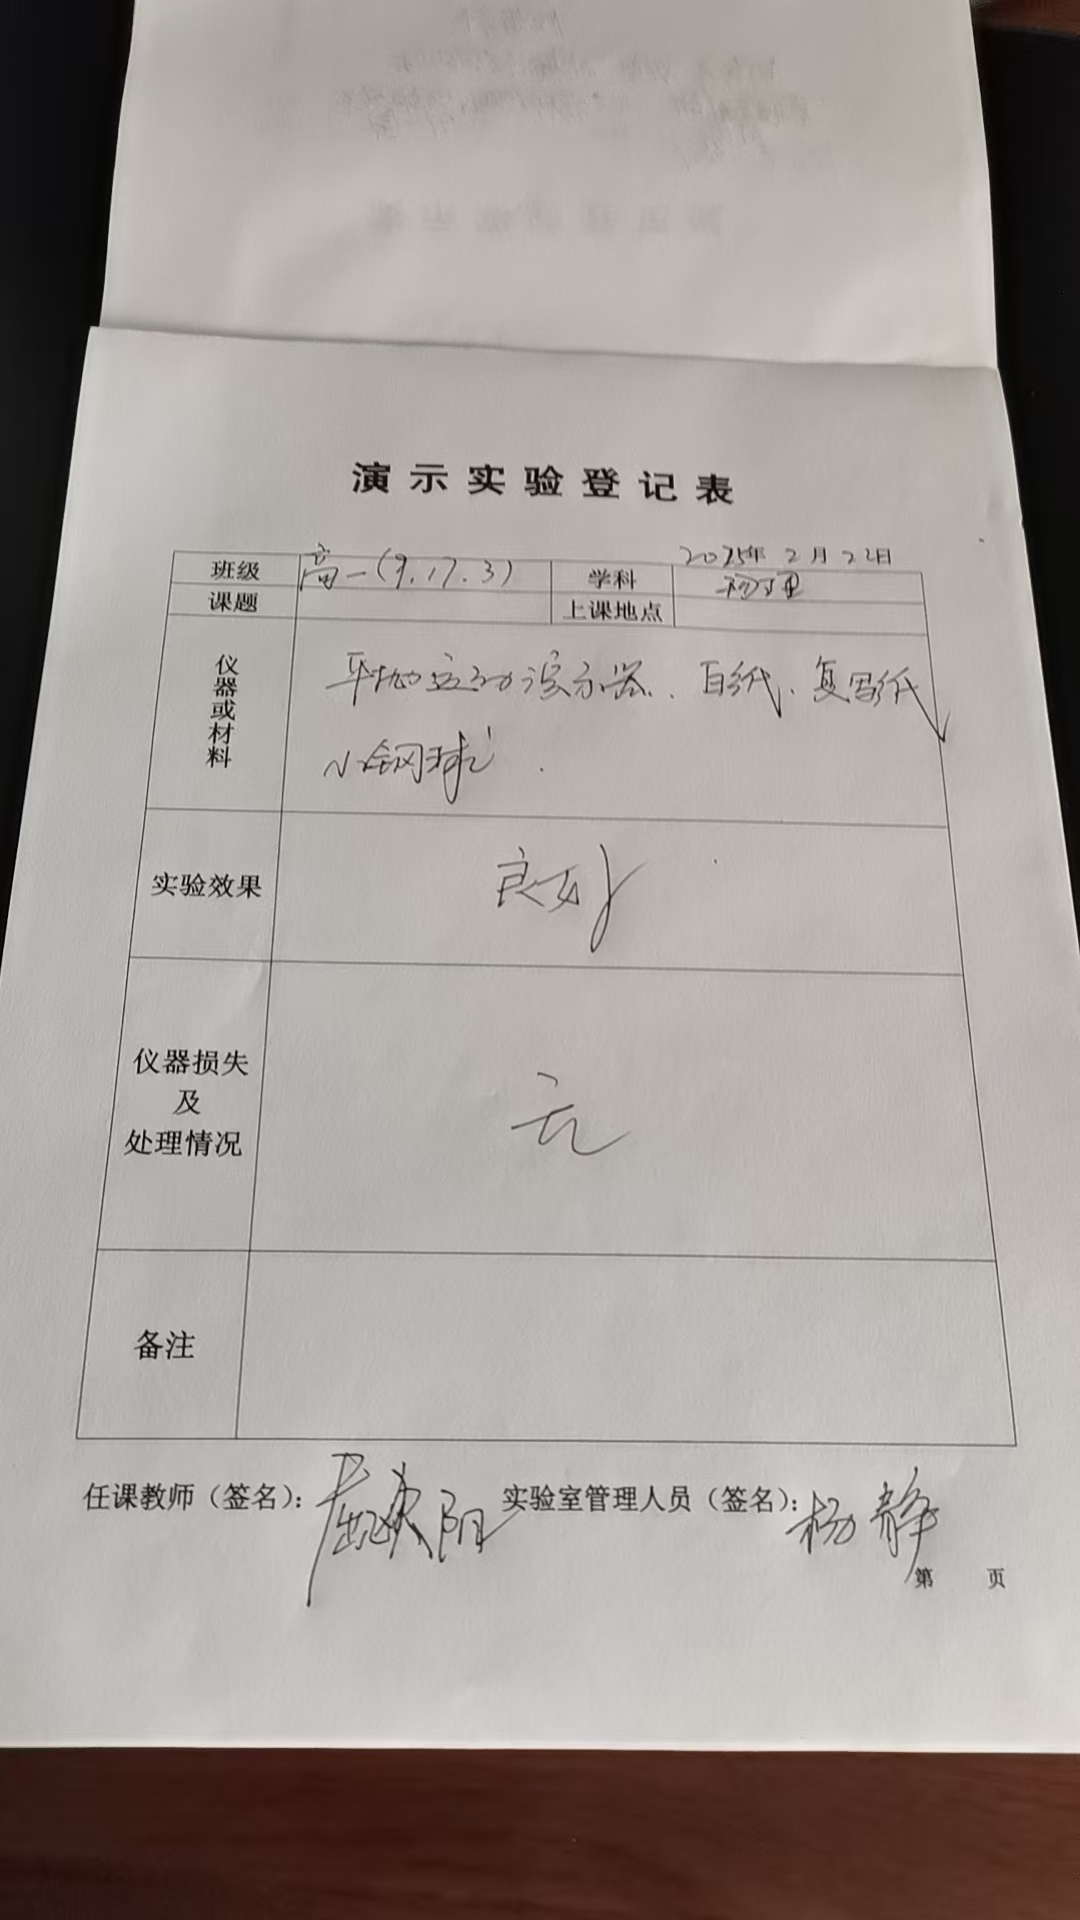 演示实验登记表
2025年 2月 22日
班级 高一(9.17.3) 学科 物理
课题 上课地点
仪器或材料 平抛运动演示器、白纸、复写纸
小钢球.
实验效果 良好
仪器损失
及
处理情况 无
备注
任课教师（签名）： 屈欧阳 实验室管理人员（签名）：杨静
第 页